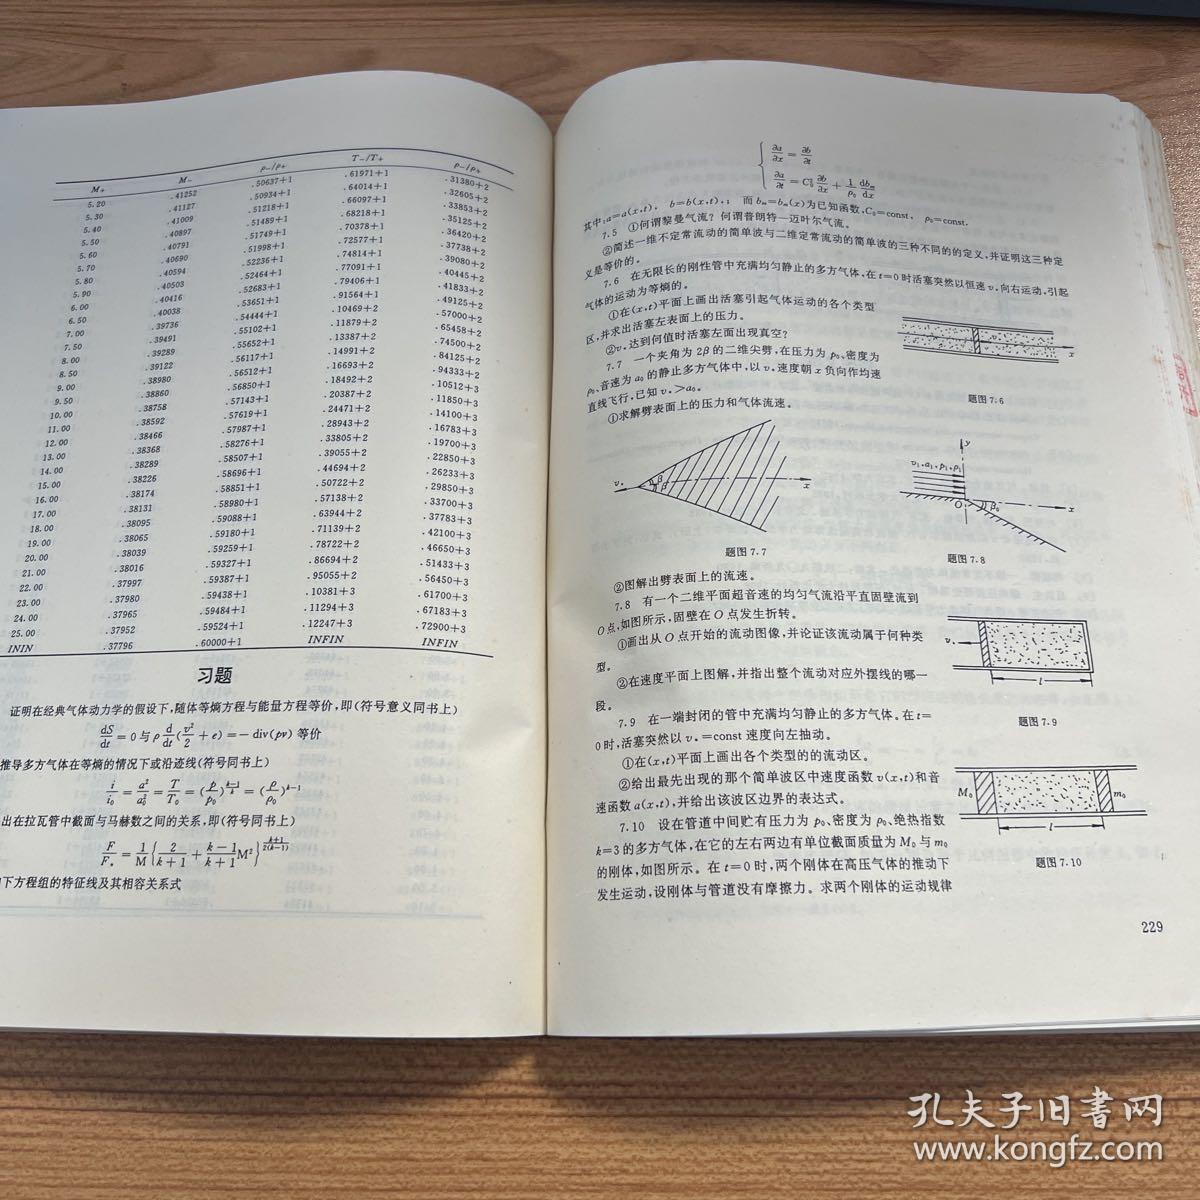 M₊ M₋ p₋/p₊ T₋/T₊ ρ₋/ρ₊
5.20 .41252 .50637+1 .61971+1 .31380+2
5.30 .41127 .50934+1 .64014+1 .32605+2
5.40 .41009 .51218+1 .66097+1 .33853+2
5.50 .40897 .51489+1 .68218+1 .35125+2
5.60 .40791 .51749+1 .70378+1 .36420+2
5.70 .40690 .51998+1 .72577+1 .37738+2
5.80 .40594 .52236+1 .74814+1 .39080+2
5.90 .40503 .52464+1 .77091+1 .40445+2
6.00 .40416 .52683+1 .79406+1 .41833+2
6.50 .40038 .53651+1 .91564+1 .49125+2
7.00 .39736 .54444+1 .10469+2 .57000+2
7.50 .39491 .55102+1 .11879+2 .65458+2
8.00 .39289 .55652+1 .13387+2 .74500+2
8.50 .39122 .56117+1 .14991+2 .84125+2
9.00 .38980 .56512+1 .16693+2 .94333+2
9.50 .38860 .56850+1 .18492+2 .10512+3
10.00 .38758 .57143+1 .20387+2 .11850+3
11.00 .38592 .57619+1 .24471+2 .14100+3
12.00 .38466 .57987+1 .28943+2 .16783+3
13.00 .38368 .58276+1 .33805+2 .19700+3
14.00 .38289 .58507+1 .39055+2 .22850+3
15.00 .38226 .58696+1 .44694+2 .26233+3
16.00 .38174 .58851+1 .50722+2 .29850+3
17.00 .38131 .58980+1 .57138+2 .33700+3
18.00 .38095 .59088+1 .63944+2 .37783+3
19.00 .38065 .59180+1 .71139+2 .42100+3
20.00 .38039 .59259+1 .78722+2 .46650+3
21.00 .38016 .59327+1 .86694+2 .51433+3
22.00 .37997 .59387+1 .95055+2 .56450+3
23.00 .37980 .59438+1 .10381+3 .61700+3
24.00 .37965 .59484+1 .11294+3 .67183+3
25.00 .37952 .59524+1 .12247+3 .72900+3
ININ .37796 .60000+1 INFIN INFIN
习题
证明在经典气体动力学的假设下,随体等熵方程与能量方程等价,即(符号意义同书上)
dS/dt = 0 与 ρ d/dt (v²/2 + e) = − div(pv) 等价
推导多方气体在等熵的情况下或沿迹线(符号同书上)
i/i₀ = a²/a₀² = T/T₀ = (p/p₀)^((k−1)/k) = (ρ/ρ₀)^(k−1)
出在拉瓦管中截面与马赫数之间的关系,即(符号同书上)
F/F* = 1/M {2/(k+1) + (k−1)/(k+1) M²}^((k+1)/2(k−1))
下方程组的特征线及其相容关系式
∂a/∂x = ∂b/∂t
∂a/∂t = C₀² ∂b/∂x + 1/ρ₀ db_m/dx
其中,a=a(x,t), b=b(x,t),; 而 b_m=b_m(x)为已知函数,C₀=const, ρ₀=const.
7.5 ①何谓黎曼气流? 何谓普朗特—迈叶尔气流。
②简述一维不定常流动的简单波与二维定常流动的简单波的三种不同的的定义,并证明这三种定
义是等价的。
7.6 在无限长的刚性管中充满均匀静止的多方气体,在 t=0 时活塞突然以恒速 v* 向右运动,引起
气体的运动为等熵的。
①在(x,t)平面上画出活塞引起气体运动的各个类型
区,并求出活塞左表面上的压力。
②v* 达到何值时活塞左面出现真空?
7.7 一个夹角为 2β 的二维尖劈,在压力为 p₀、密度为
ρ₀、音速为 a₀ 的静止多方气体中,以 v* 速度朝 x 负向作均速
直线飞行,已知 v*>a₀。
①求解劈表面上的压力和气体流速。
x
题图 7.6
v* β β x
题图 7.7
y
v₁,a₁,p₁,ρ₁
O β₀ x
题图 7.8
②图解出劈表面上的流速。
7.8 有一个二维平面超音速的均匀气流沿平直固壁流到
O 点,如图所示,固壁在 O 点发生折转。
①画出从 O 点开始的流动图像,并论证该流动属于何种类
型。
②在速度平面上图解,并指出整个流动对应外摆线的哪一
段。
7.9 在一端封闭的管中充满均匀静止的多方气体。在 t=
0 时,活塞突然以 v*=const 速度向左抽动。
①在(x,t)平面上画出各个类型的的流动区。
②给出最先出现的那个简单波区中速度函数 v(x,t)和音
速函数 a(x,t),并给出该波区边界的表达式。
7.10 设在管道中间贮有压力为 p₀、密度为 ρ₀、绝热指数
k=3 的多方气体,在它的左右两边有单位截面质量为 M₀ 与 m₀
的刚体,如图所示。在 t=0 时,两个刚体在高压气体的推动下
发生运动,设刚体与管道没有摩擦力。求两个刚体的运动规律
v*
l
题图 7.9
M₀ m₀
l
题图 7.10
229
孔夫子旧书网
www.kongfz.com